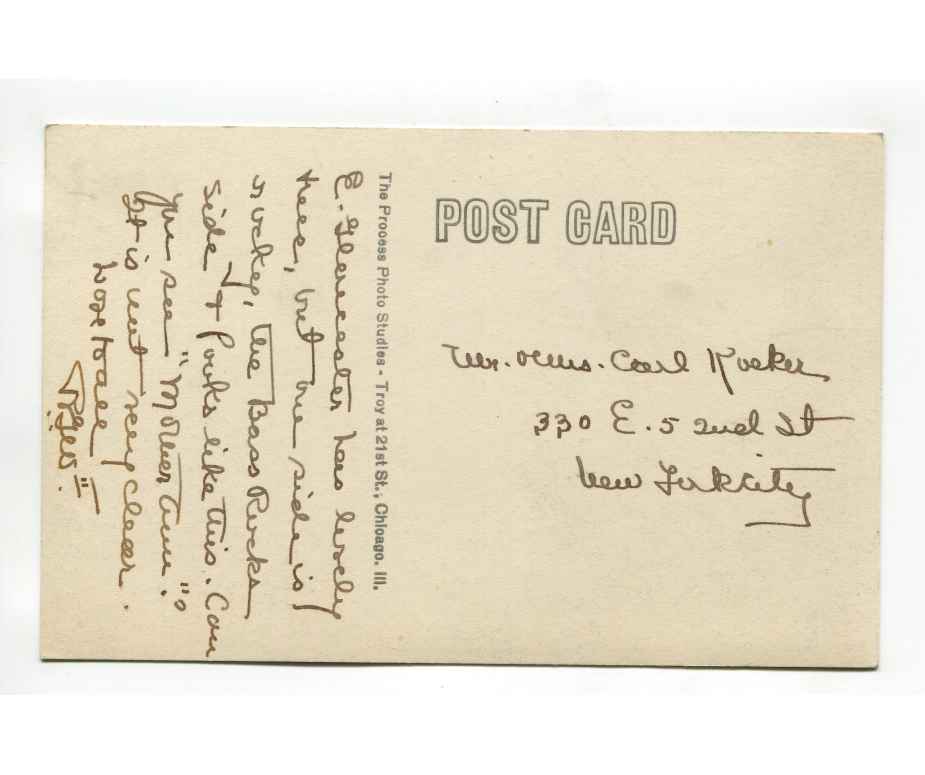 POST CARD
The Process Photo Studies - Troy at 21st St., Chicago. Ill.
E. Gloucester has lovely
trees, but one side is
rocky, the Bass Rocks
side & looks like this. Can
you see "Mother Ann"?
It is not very clear.
Love to all
Mr. & Mrs. Carl
330 E. 52nd St
New York City